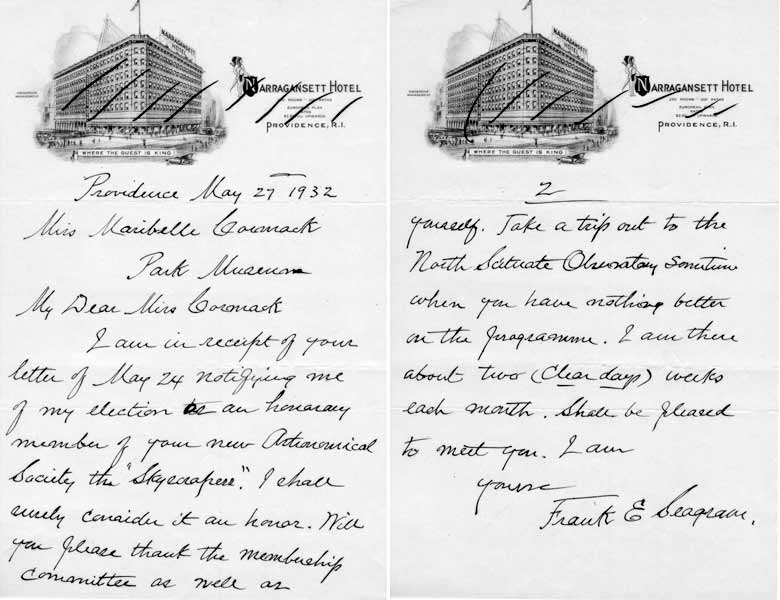 NARRAGANSETT HOTEL
NARRAGANSETT HOTEL
EUROPEAN PLAN
PROVIDENCE, R.I.
WHERE THE GUEST IS KING
Providence May 27 1932
Miss Maribelle Cormack
Park Museum
My Dear Miss Cormack
I am in receipt of your
letter of May 24 notifying me
of my election as an honorary
member of your new Astronomical
Society the "Skyscrapers". I shall
surely consider it an honor. Will
you please thank the membership
committee as well as
NARRAGANSETT HOTEL
NARRAGANSETT HOTEL
EUROPEAN PLAN
PROVIDENCE, R.I.
WHERE THE GUEST IS KING
2
yourself. Take a trip out to the
North Scituate Observatory sometime
when you have nothing better
on the programme. I am there
about two (clear days) weeks
each month. Shall be pleased
to meet you. I am
yours
Frank E Seagrave.